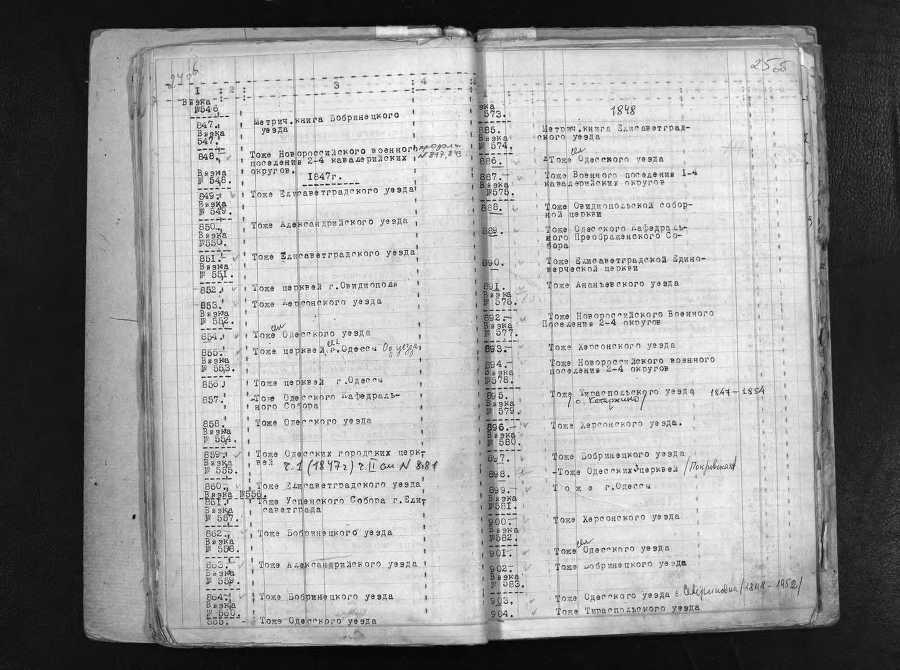 246
1 2 3 4
Вязка
№546
847. Метрич.книга Бобринецкого
Вязка уезда
547.
848. Тоже Новороссийского военного
поселения 2-4 кавалерийских
Вязка округов.
№ 548.
1847г.
849. Тоже Елисаветградского уезда
Вязка
№ 549.
850. Тоже Александрийского уезда
Вязка
№550.
851. Тоже Елисаветградского уезда
Вязка
№ 551.
852. Тоже церквей г.Овидиополя
853. Тоже Херсонского уезда
Вязка
№ 552.
854. Тоже Одесского уезда
855. Тоже церквей г.Одессы Од уезда
Вязка
№ 553.
856. Тоже церквей г.Одессы
857. Тоже Одесского Кафедраль-
ного Собора
858. Тоже Одесского уезда
Вязка
№ 554.
859. Тоже Одесских городских церк-
Вязка вей ч.1 (1847г) ч II см N 881
№ 555.
860. Тоже Елисаветградского уезда
Вязка №556.
861. Тоже Успенского Собора г.Ели-
Вязка саветграда
№ 557.
862. Тоже Бобринецкого уезда
Вязка
№ 558.
863. Тоже Александрийского уезда
Вязка
№ 559.
864. Тоже Бобринецкого уезда
Вязка
№ 560.
865. Тоже Одесского уезда
255
573. 1848
885. Метрич.книга Елисаветград-
Вязка ского уезда
№ 574.
886. Тоже Одесского уезда
887. Тоже Военного поселения 1-4
Вязка кавалерийских округов
№575.
888. Тоже Овидиопольской собор-
ной церкви
889. Тоже Одесского Кафедраль-
ного Преображенского Со-
бора
890. Тоже Елисаветградской Едино-
верческой церкви
891. Тоже Ананьевского уезда
Вязка
№ 576.
892. Тоже Новороссийского Военного
Вязка Поселения 2-4 округов
№ 577.
893. Тоже Херсонского уезда
894. Тоже Новороссийского военного
Вязка поселения 2-4 округов
№578.
895. Тоже Тираспольского уезда 1847-1854
Вязка
№ 579.
896. Тоже Херсонского уезда.
Вязка
№ 580.
897. Тоже Бобринецкого уезда
898. Тоже Одесских церквей /Покровская/
899. Тоже г.Одессы
Вязка
№581.
900. Тоже Херсонского уезда
Вязка
№582.
901. Тоже Одесского уезда
902. Тоже Бобринецкого уезда
Вязка
№ 583.
903. Тоже Одесского уезда
904. Тоже Тираспольского уезда